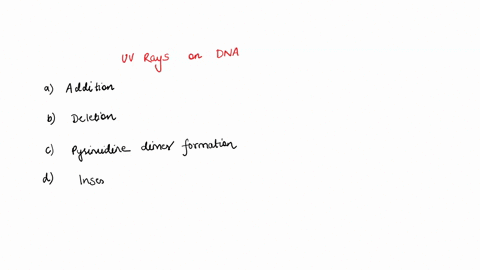 UV Rays on DNA
a) Addition
b) Deletion
c) Pyrimidine dimer formation
d) Inse